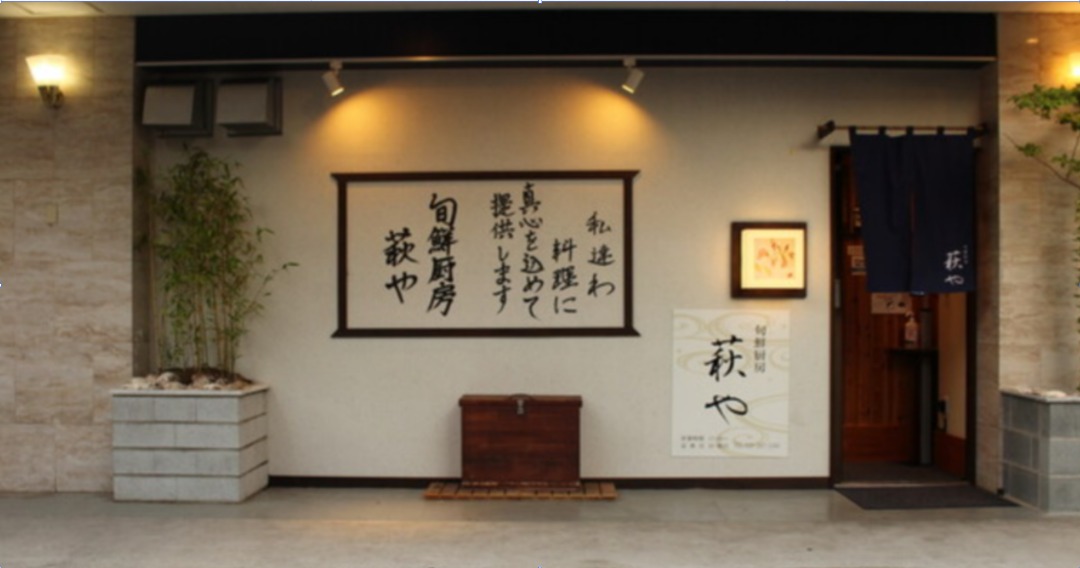 私達わ
料理に
真心を込めて
提供します
旬鮮厨房
萩や
旬鮮厨房
萩や
萩や